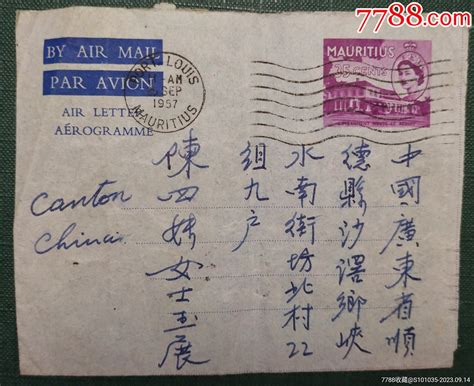 7788.com
BY AIR MAIL
PAR AVION
AIR LETTER
AÉROGRAMME
PORT LOUIS
AM
SEP
1957
MAURITIUS
MAURITIUS
CENTS
中國廣東省順
德縣沙滘鄉峽
水南街坊北村22
组九户
陳四妹女士玉展
Canton
China
7788收藏@S101035-2023.09.14